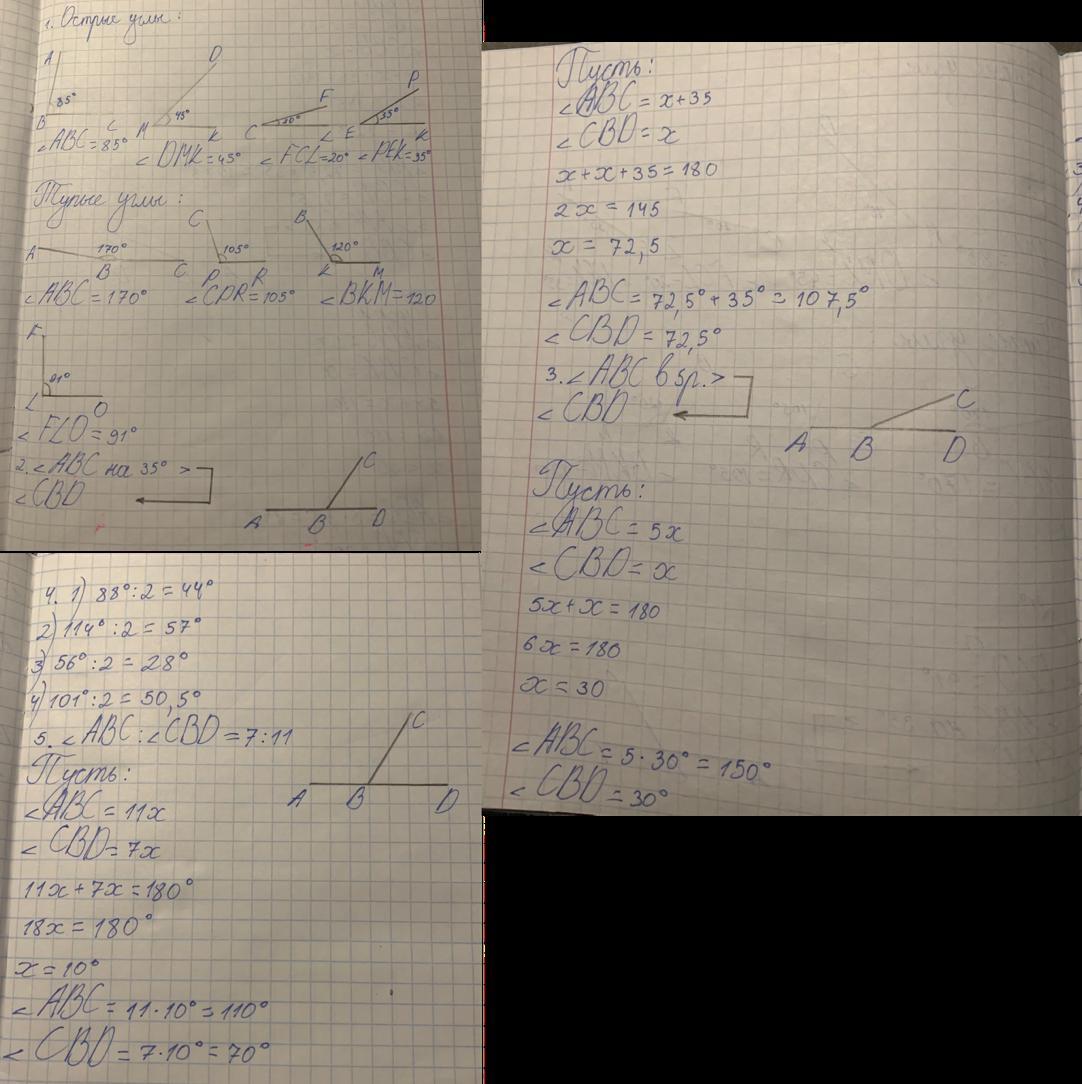 1. Острые углы:
A
D
85°
45°
F
20°
P
35°
B
C
M
K
C
L
E
K
∠ABC=85°
∠DMK=45°
∠FCL=20°
∠PEK=35°
Тупые углы:
A
170°
B
C
C
105°
P
R
B
120°
K
M
∠ABC=170°
∠CPR=105°
∠BKM=120
F
91°
L
O
∠FLO=91°
2. ∠ABC на 35° >
∠CBD
C
A
B
D
Пусть:
∠ABC = x+35
∠CBD = x
x+x+35=180
2x=145
x = 72,5
∠ABC = 72,5°+35° = 107,5°
∠CBD = 72,5°
3. ∠ABC в 5р. >
∠CBD
C
A
B
D
Пусть:
∠ABC = 5x
∠CBD = x
5x+x=180
6x=180
x=30
∠ABC = 5·30° = 150°
∠CBD = 30°
4. 1) 88°:2=44°
2) 114°:2=57°
3) 56°:2=28°
4) 101°:2=50,5°
5. ∠ABC:∠CBD=7:11
C
A
B
D
Пусть:
∠ABC=11x
∠CBD=7x
11x+7x=180°
18x=180°
x=10°
∠ABC=11·10°=110°
∠CBD=7·10°=70°